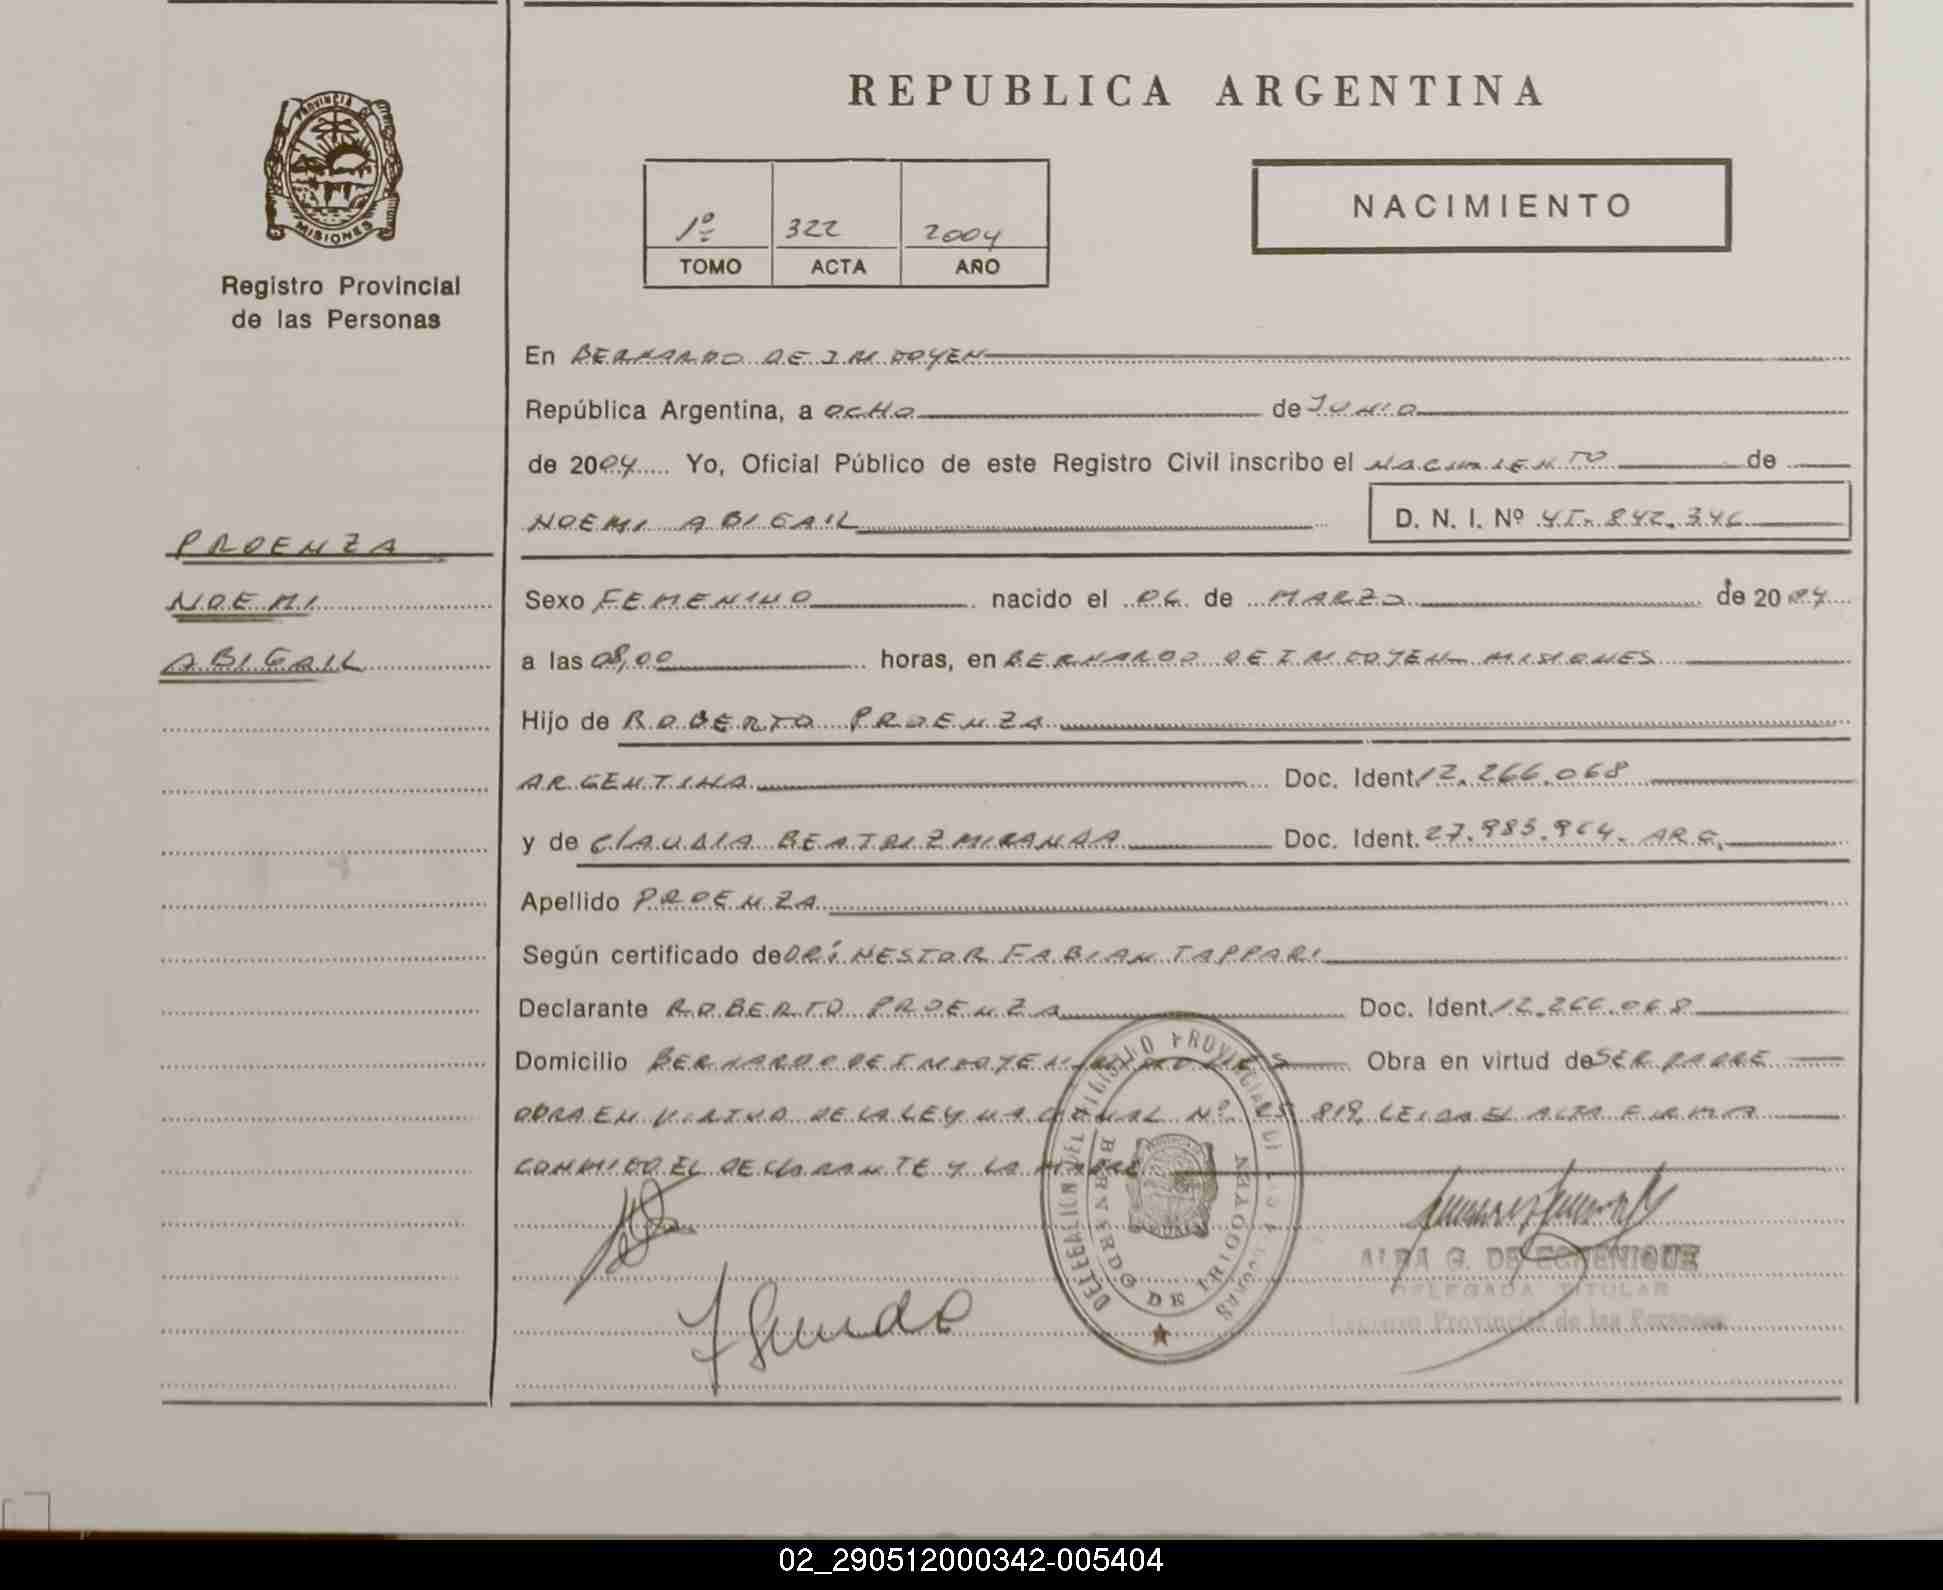 REPUBLICA ARGENTINA
PROVINCIA DE
MISIONES
Registro Provincial
de las Personas
1º 322 2004
TOMO ACTA AÑO
NACIMIENTO
En BERNARDO DE IRIGOYEN
República Argentina, a OCHO de JUNIO
de 2004 Yo, Oficial Público de este Registro Civil inscribo el NACIMIENTO de
NOEMI ABIGAIL D. N. I. Nº 45.842.346
PROENZA
NOEMI
ABIGAIL
Sexo FEMENINO nacido el 06 de MARZO de 2004
a las 08,00 horas, en BERNARDO DE IRIGOYEN MISIONES
Hijo de ROBERTO PROENZA
ARGENTINA Doc. Ident. 12.266.068
y de ClAUDIA BEATRIZ MIRANDA Doc. Ident. 27.985.964. ARG.
Apellido PROENZA
Según certificado de DR: NESTOR FABIAN TAPPARI
Declarante ROBERTO PROENZA Doc. Ident. 12.266.068
Domicilio BERNARDO DE IRIGOYEN MISIONES Obra en virtud de SER PADRE
OBRA EN VIRTUD DE LA LEY NACIONAL Nº 25 819, LEIDA EL ACTA FIRMA
CONMIGO EL DEClARANTE Y LA MADRE
DELEGACION DEL REGISTRO PROVINCIAL DE LAS PERSONAS
BERNARDO DE IRIGOYEN
ALBA G. DE ECHENIQUE
DELEGADA TITULAR
Registro Provincial de las Personas
02_290512000342-005404